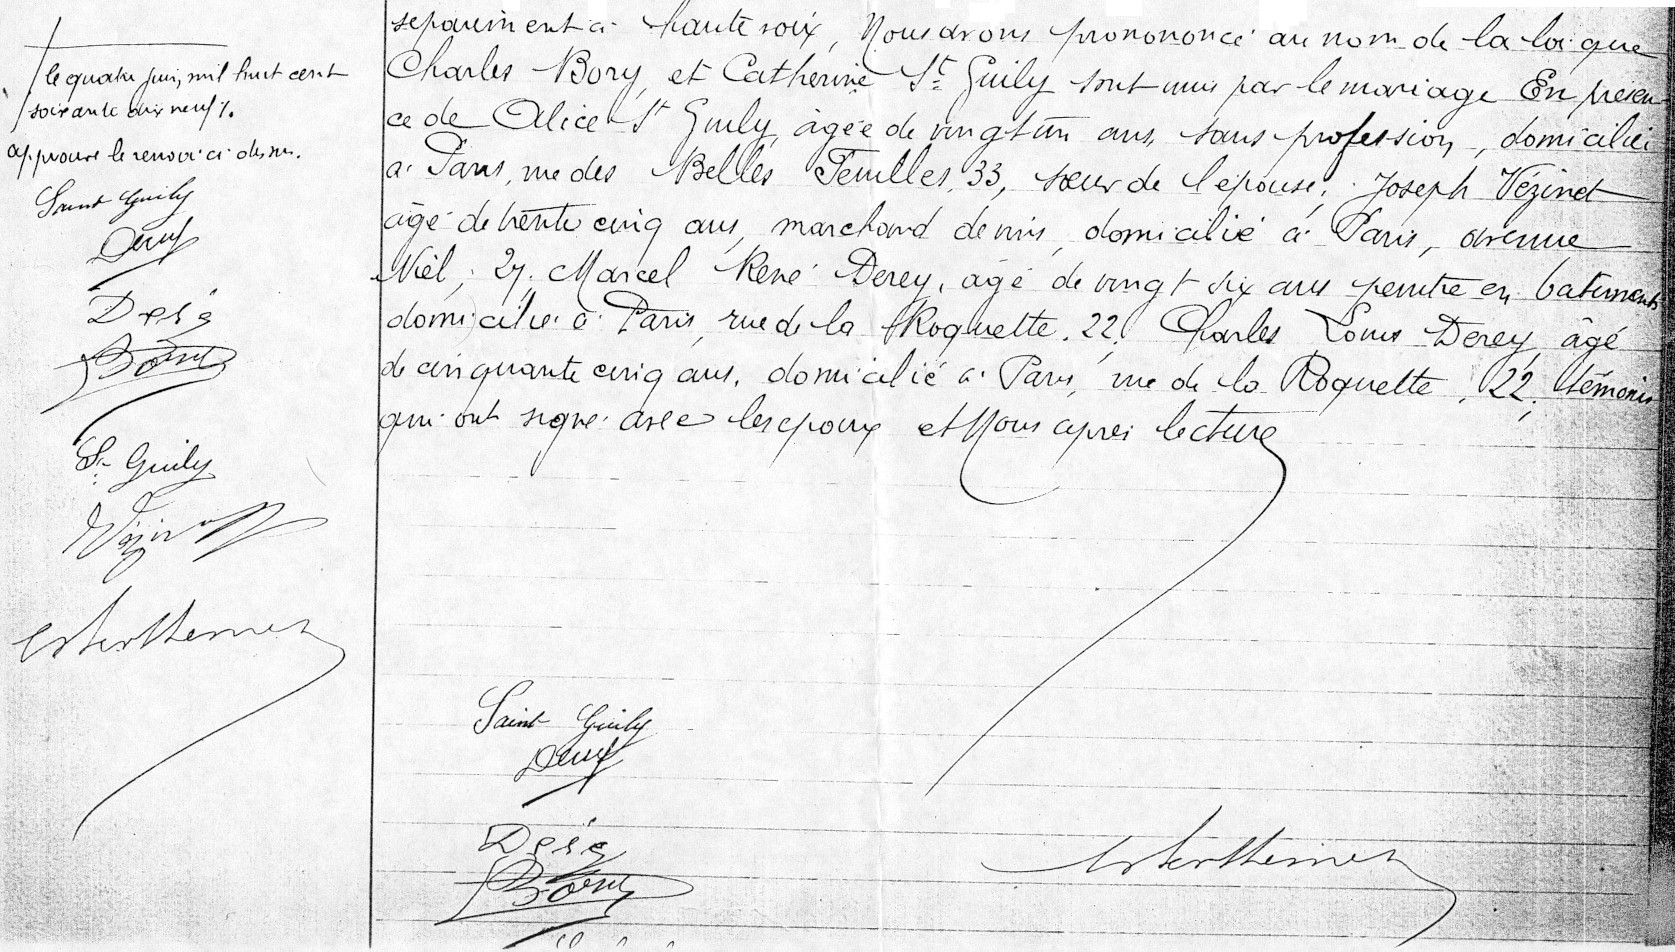 le quatre juin, mil huit cent
soixante dix neuf /.
approuvé le renvoi ci dessus.
Saint Guily
Derey
Deré
Bory
St Guily
Vézinet
séparément à haute voix, Nous avons pronononcé au nom de la loi que
Charles Bory, et Catherine St Guily sont unis par le mariage En présen
ce de Alice St Guily, âgée de vingt un ans, sans profession, domicilié
à Paris, rue des Belles Feuilles, 33, sœur de l'épouse; Joseph Vézinet
âgé de trente cinq ans, marchand de vins, domicilié à Paris, avenue
Niel, 27. Marcel René Derey, âgé de vingt six ans peintre en batiments
domicilié à Paris, rue de la Roquette. 22, Charles Louis Derey, âgé
de cinquante cinq ans, domicilié à Paris, rue de la Roquette, 22, témoins
qui ont signé avec les époux et Nous après lecture
Saint Guily
Derey
Deré
Bory